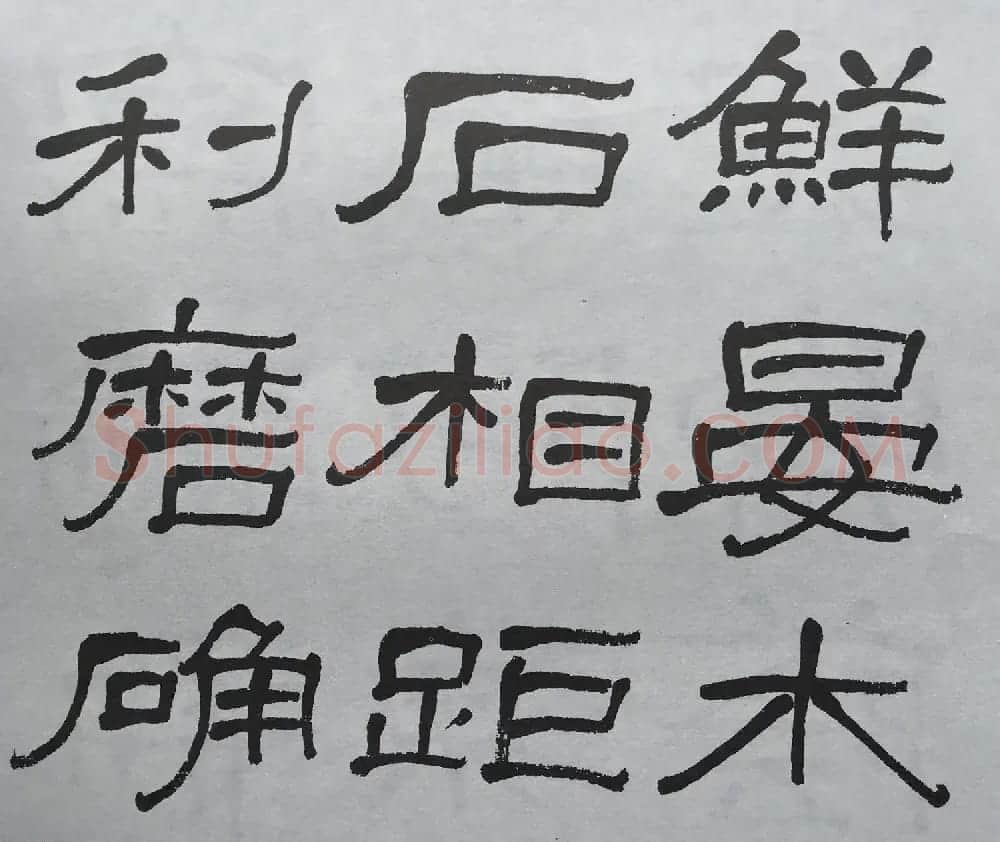 鮮晏木
石相距
利磨确
Shufaziliao.COM